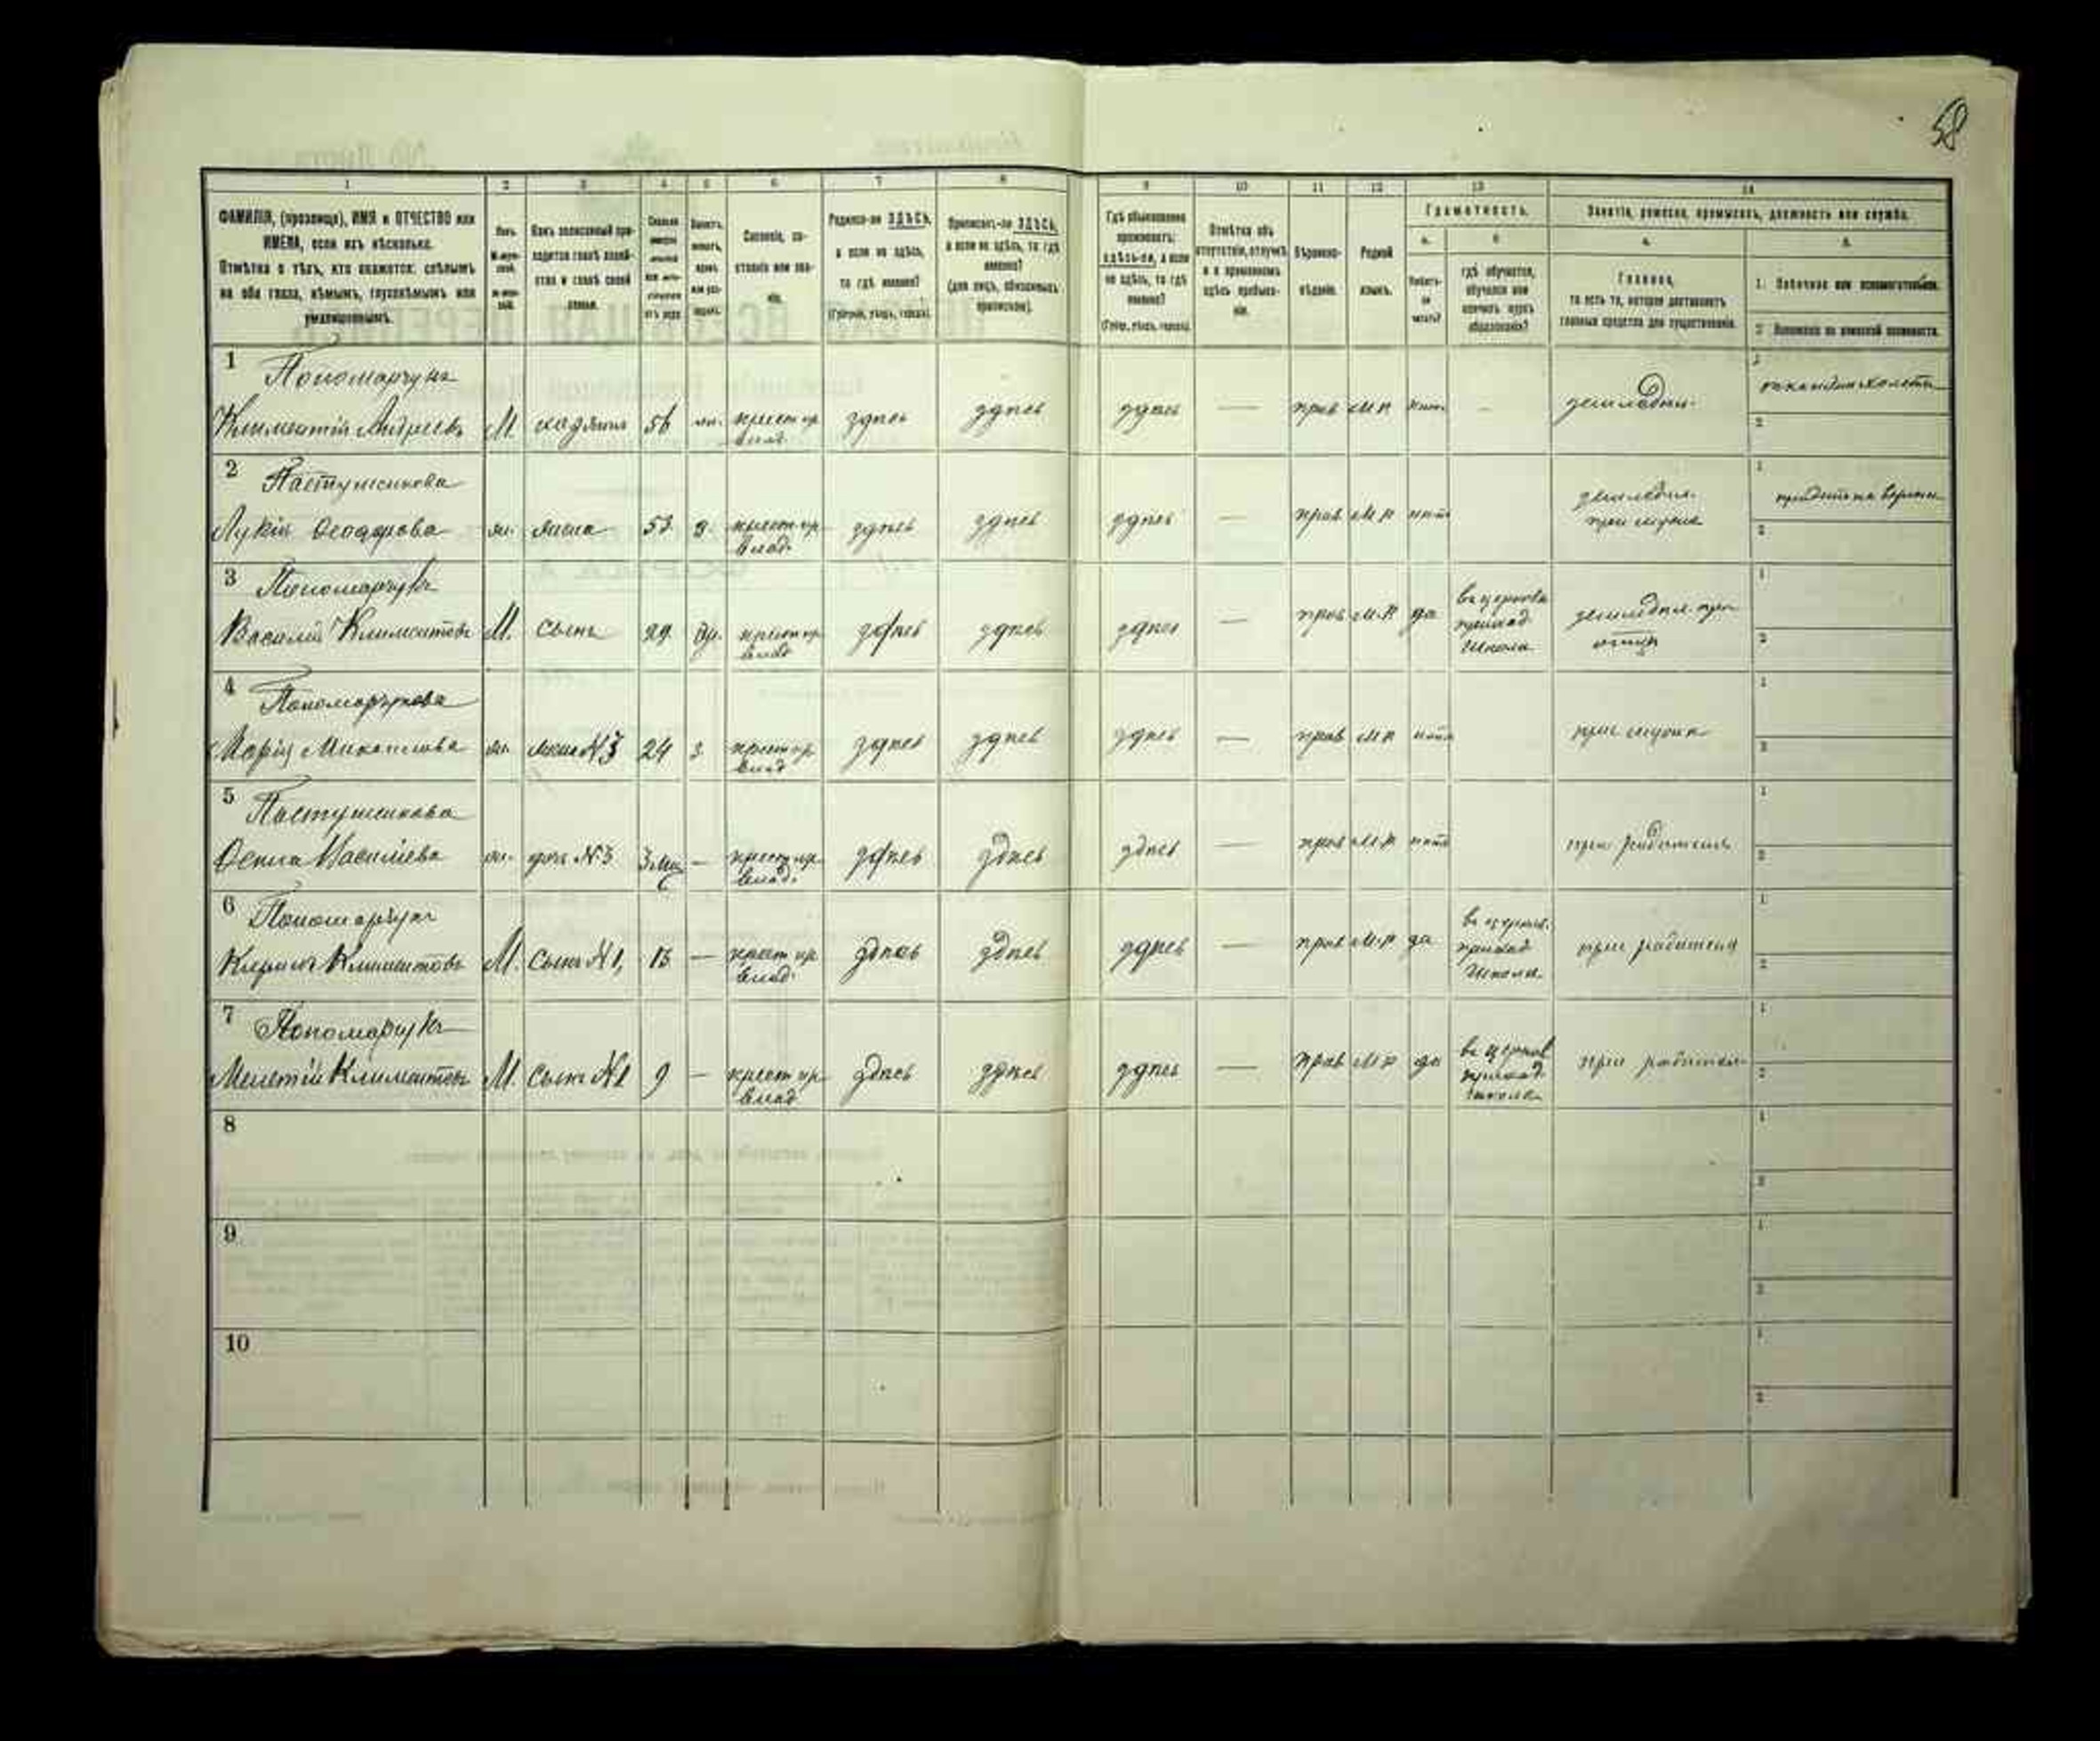 58
1 2 3 4 5 6 7 8 9 10 11 12 13 14
ФАМИЛІЯ, (прозвище), ИМЯ и ОТЧЕСТВО или
ИМЕНА, если ихъ нѣсколько.
Отмѣтка о тѣхъ, кто окажется: слѣпымъ
на оба глаза, нѣмымъ, глухонѣмымъ или
умалишеннымъ.
Полъ.
Какъ записанный при-
ходится главѣ хозяй-
ства и главѣ своей
семьи.
Сословіе, со-
стояніе или зва-
ніе.
Родился-ли ЗДѢСЬ,
а если не здѣсь,
то гдѣ именно?
(Губернія, уѣздъ, городъ).
Приписанъ-ли ЗДѢСЬ,
а если не здѣсь, то гдѣ
именно?
(для лицъ, обязанныхъ
припискою).
Гдѣ обыкновенно
проживаетъ:
здѣсь-ли, а если
не здѣсь, то гдѣ
именно?
(Губер., уѣздъ, городъ).
Отмѣтка объ
отсутствіи, отлучкѣ
и о временномъ
здѣсь пребыва-
ніи.
Вѣроиспо-
вѣданіе.
Родной
языкъ.
Грамотность.
а. б.
Умѣетъ-
ли
читать?
гдѣ обучается,
обучался или
кончилъ курсъ
образованія?
Занятіе, ремесло, промыселъ, должность или служба.
а. б.
Главное,
то есть то, которое доставляетъ
главныя средства для существованія.
1. Побочное или вспомогательное.
2. Положеніе по воинской повинности.
1 Пономарчукъ
Климентій Андреевъ М. хозяинъ 56 крест вр. влад здѣсь здѣсь здѣсь — прав М Р нѣтъ землед. 1 2
2 Пастушенкова
Лукія Феодорова ж. жена 53 з. крест вр. влад. здѣсь здѣсь здѣсь — прав М Р нѣтъ землед. при мужѣ 1 2
3 Пономарчукъ
Василій Климентовъ М. сынъ 29 крест вр. влад здѣсь здѣсь здѣсь — прав М.Р да въ церковн приход школѣ землед. при отцѣ 1 2
4 Пономарчукова
Марія Михаилова ж. жена №3 24 з. крест вр влад здѣсь здѣсь здѣсь — прав М Р нѣтъ при мужѣ 1 2
5 Пастушенкова
Васильева ж. дочь №3 — крест вр. влад. здѣсь здѣсь здѣсь — прав М.Р нѣтъ при родителях 1 2
6 Пономарчукъ
Климентовъ М. Сынъ №1, 13 — крест вр влад. здѣсь здѣсь здѣсь — прав М.Р да въ церков. приход школѣ при родителях 1 2
7 Пономарчукъ
Мелетій Климентовъ М. Сынъ №1 9 — крест вр влад здѣсь здѣсь здѣсь — прав М Р да въ церков приход школѣ при родителях 1 2
8 1 2
9 1 2
10 1 2